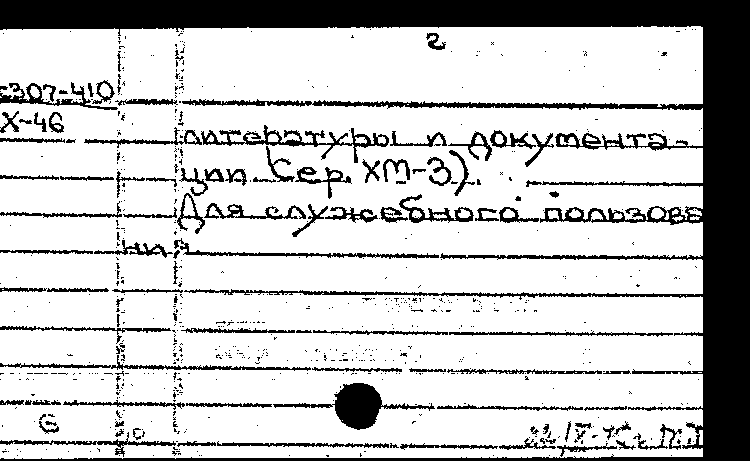 2
307-410
Х-46
литературы и документа-
ции. Сер. ХМ-3).
Для служебного пользова
ния.